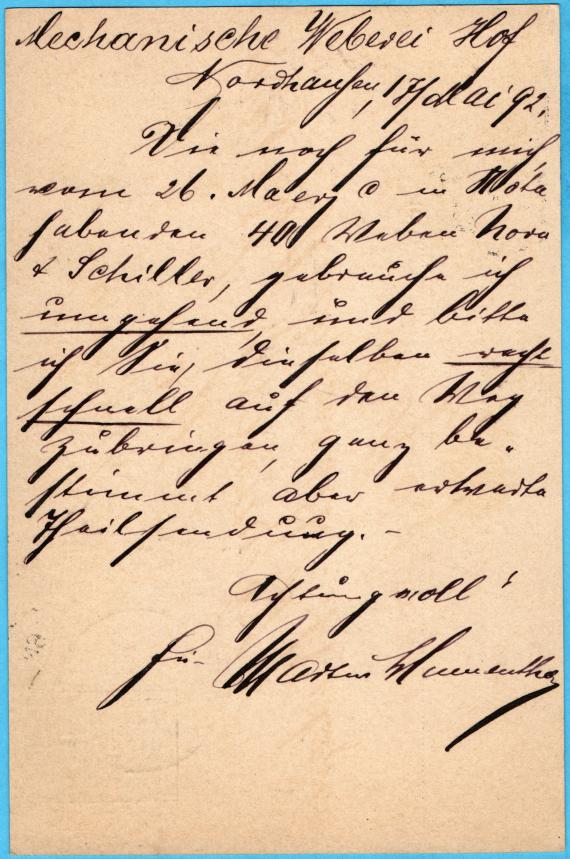 Mechanische Weberei Hof
Nordhausen, 17/Mai 92.
Die noch für mich
vom 26. Maerz c in Nota
habenden 40 Weben Nora
& Schiller, gebrauche ich
umgehend, und bitte
ich Sie, dieselben recht
schnell auf den Weg
zubringen, ganz be-
stimmt aber erwarte
Theilsendung. -
Achtungsvoll!
Blumenthal